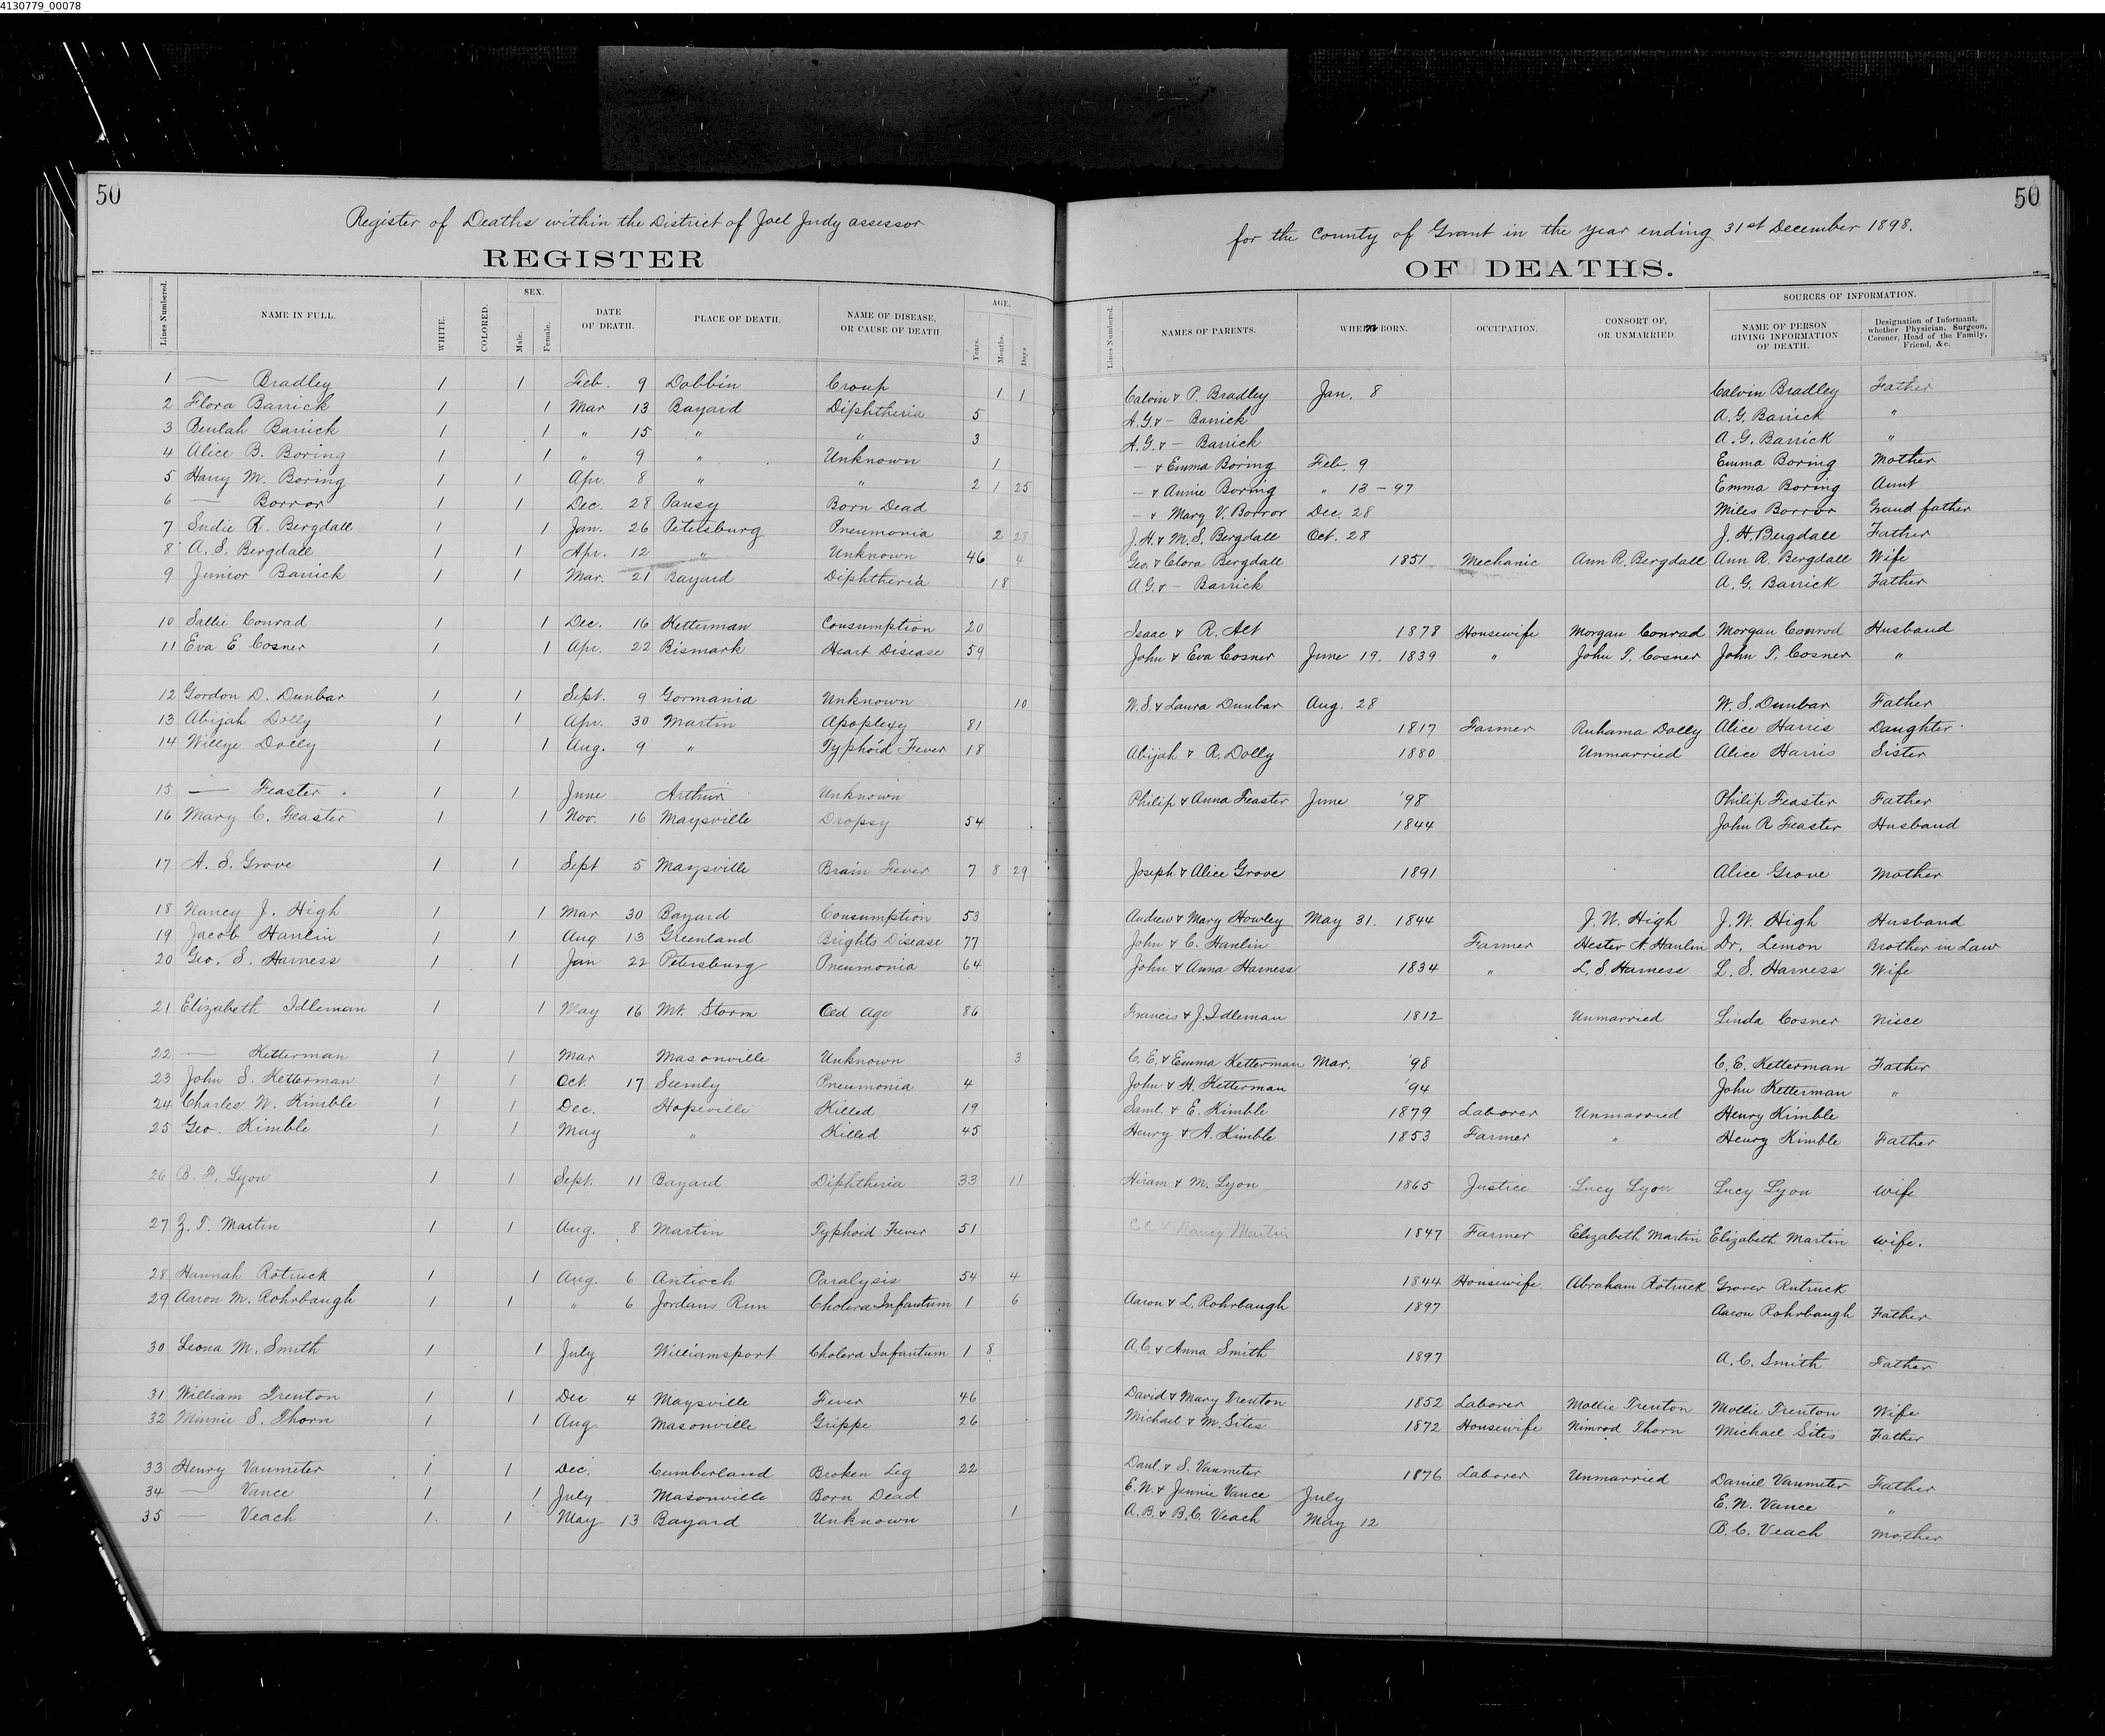 4130779_00078
50
50
Register of Deaths within the District of Joel Judy assessor for the County of Grant in the year ending 31st December 1898.
REGISTER OF DEATHS.
Lines Numbered. NAME IN FULL. WHITE. COLORED. SEX. Male. Female. DATE OF DEATH. PLACE OF DEATH. NAME OF DISEASE, OR CAUSE OF DEATH. AGE. Years. Months. Days Lines Numbered. NAMES OF PARENTS. WHEN BORN. OCCUPATION. CONSORT OF, OR UNMARRIED. SOURCES OF INFORMATION. NAME OF PERSON GIVING INFORMATION OF DEATH. Designation of Informant, whether Physician, Surgeon, Coroner, Head of the Family, Friend, &c.
1 — Bradley 1 1 Feb. 9 Dobbin Croup 1 1 Calvin & P. Bradley Jan. 8 Calvin Bradley Father
2 Flora Barrick 1 1 Mar 13 Bayard Diphtheria 5 A.G. & — Barrick A.G. Barrick "
3 Beulah Barrick 1 1 " 15 " " 3 A.G. & — Barrick A.G. Barrick "
4 Alice B. Boring 1 1 " 9 " Unknown 1 — & Emma Boring Feb. 9 Emma Boring Mother
5 Harry M. Boring 1 1 Apr. 8 " " 2 1 25 — & Annie Boring " 13 - 97 Emma Boring Aunt
6 — Borror 1 1 Dec. 28 Pansy Born Dead — & Mary V. Borror Dec. 28 Miles Borror Grand father
7 Sudie R. Bergdall 1 1 Jan. 26 Petersburg Pneumonia 2 28 J.H. & M.S. Bergdall Oct. 28 J.H. Bergdall Father
8 A. S. Bergdall 1 1 Apr. 12 " Unknown 46 4 Geo. & Clora Bergdall 1851 Mechanic Ann R. Bergdall Ann R. Bergdall Wife
9 Junior Barrick 1 1 Mar. 21 Bayard Diphtheria 18 A.G. & — Barrick A.G. Barrick Father
10 Sallie Conrad 1 1 Dec. 16 Ketterman Consumption 20 Isaac & R. Alt 1878 Housewife Morgan Conrad Morgan Conrod Husband
11 Eva E. Cosner 1 1 Apr. 22 Bismark Heart Disease 59 John & Eva Cosner June 19. 1839 " John T. Cosner John T. Cosner "
12 Gordon D. Dunbar 1 1 Sept. 9 Gormania Unknown 10 W.S. & Laura Dunbar Aug. 28 W.S. Dunbar Father
13 Abijah Dolly 1 1 Apr. 30 Martin Apoplexy 81 1817 Farmer Ruhama Dolly Alice Harris Daughter
14 Willye Dolly 1 1 Aug. 9 " Typhoid Fever 18 Abijah & R. Dolly 1880 Unmarried Alice Harris Sister
15 — Feaster 1 1 June Arthur Unknown Philip & Anna Feaster June '98 Philip Feaster Father
16 Mary C. Feaster 1 1 Nov. 16 Maysville Dropsy 54 1844 John R Feaster Husband
17 A. S. Grove 1 1 Sept 5 Maysville Brain Fever 7 8 29 Joseph & Alice Grove 1891 Alice Grove Mother
18 Nancy J. High 1 1 Mar 30 Bayard Consumption 53 Andrew & Mary Howley May 31. 1844 J.W. High J.W. High Husband
19 Jacob Hanlin 1 1 Aug 13 Greenland Brights Disease 77 John & C. Hanlin Farmer Hester A. Hanlin Dr. Lemon Brother in Law
20 Geo. S. Harness 1 1 Jan 22 Petersburg Pneumonia 64 John & Anna Harness 1834 " L.S. Harness L.S. Harness Wife
21 Elizabeth Idleman 1 1 May 16 Mt. Storm Old Age 86 Francis & J. Idleman 1812 Unmarried Linda Cosner Niece
22 — Ketterman 1 1 Mar Masonville Unknown 3 C.E. & Emma Ketterman Mar. '98 C.E. Ketterman Father
23 John S. Ketterman 1 1 Oct. 17 Seemly Pneumonia 4 John & A. Ketterman '94 John Ketterman "
24 Charles W. Kimble 1 1 Dec. Hopeville Killed 19 Saml. & E. Kimble 1879 Laborer Unmarried Henry Kimble
25 Geo. Kimble 1 1 May " Killed 45 Henry & A. Kimble 1853 Farmer " Henry Kimble Father
26 B. F. Lyon 1 1 Sept. 11 Bayard Diphtheria 33 11 Hiram & M. Lyon 1865 Justice Lucy Lyon Lucy Lyon wife
27 Z. T. Martin 1 1 Aug. 8 Martin Typhoid Fever 51 & Nancy Martin 1847 Farmer Elizabeth Martin Elizabeth Martin wife.
28 Hannah Rotruck 1 1 Aug. 6 Antioch Paralysis 54 4 1844 Housewife Abraham Rotruck Grover Rutruck
29 Aaron M. Rohrbaugh 1 1 " 6 Jordans Run Cholera Infantum 1 6 Aaron & L. Rohrbaugh 1897 Aaron Rohrbaugh Father
30 Leona M. Smith 1 1 July Williamsport Cholera Infantum 1 8 A.C. & Anna Smith 1897 A.C. Smith Father
31 William Trenton 1 1 Dec 4 Maysville Fever 46 David & Mary Trenton 1852 Laborer Mollie Trenton Mollie Trenton Wife
32 Minnie S. Thorn 1 1 Aug. Masonville Grippe 26 Michael & M. Sites 1872 Housewife Nimrod Thorn Michael Sites Father
33 Henry Vanmeter 1 1 Dec. Cumberland Broken Leg 22 Danl. & S. Vanmeter 1876 Laborer Unmarried Daniel Vanmeter Father
34 — Vance 1 1 July Masonville Born Dead E.N. & Jennie Vance July E.N. Vance "
35 — Veach 1 1 May 13 Bayard Unknown 1 A.B. & B.C. Veach May 12 B.C. Veach Mother